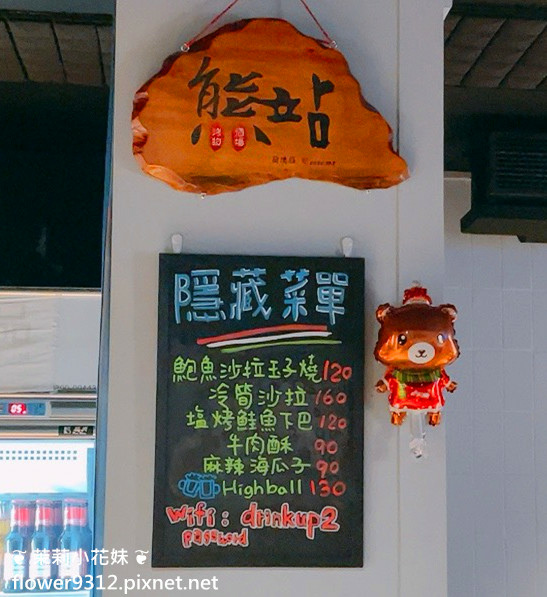 熊站
酒場
隱藏菜單
鮑魚沙拉玉子燒120
冷筍沙拉 160
塩烤鮭魚下巴 120
牛肉酥 90
麻辣海瓜子 90
Highball 130
wifi : drinkup2
password
茉莉小花妹
flower9312.pixnet.net